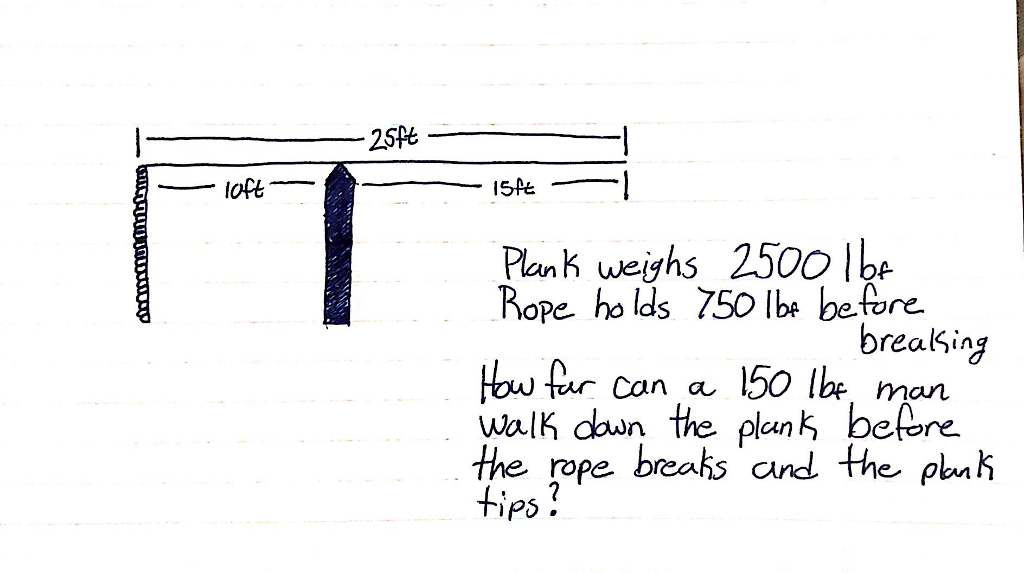 25ft
10ft
15ft
Plank weighs 2500 lbf
Rope holds 750 lbf before
breaking
How far can a 150 lbf man
walk down the plank before
the rope breaks and the plank
tips?